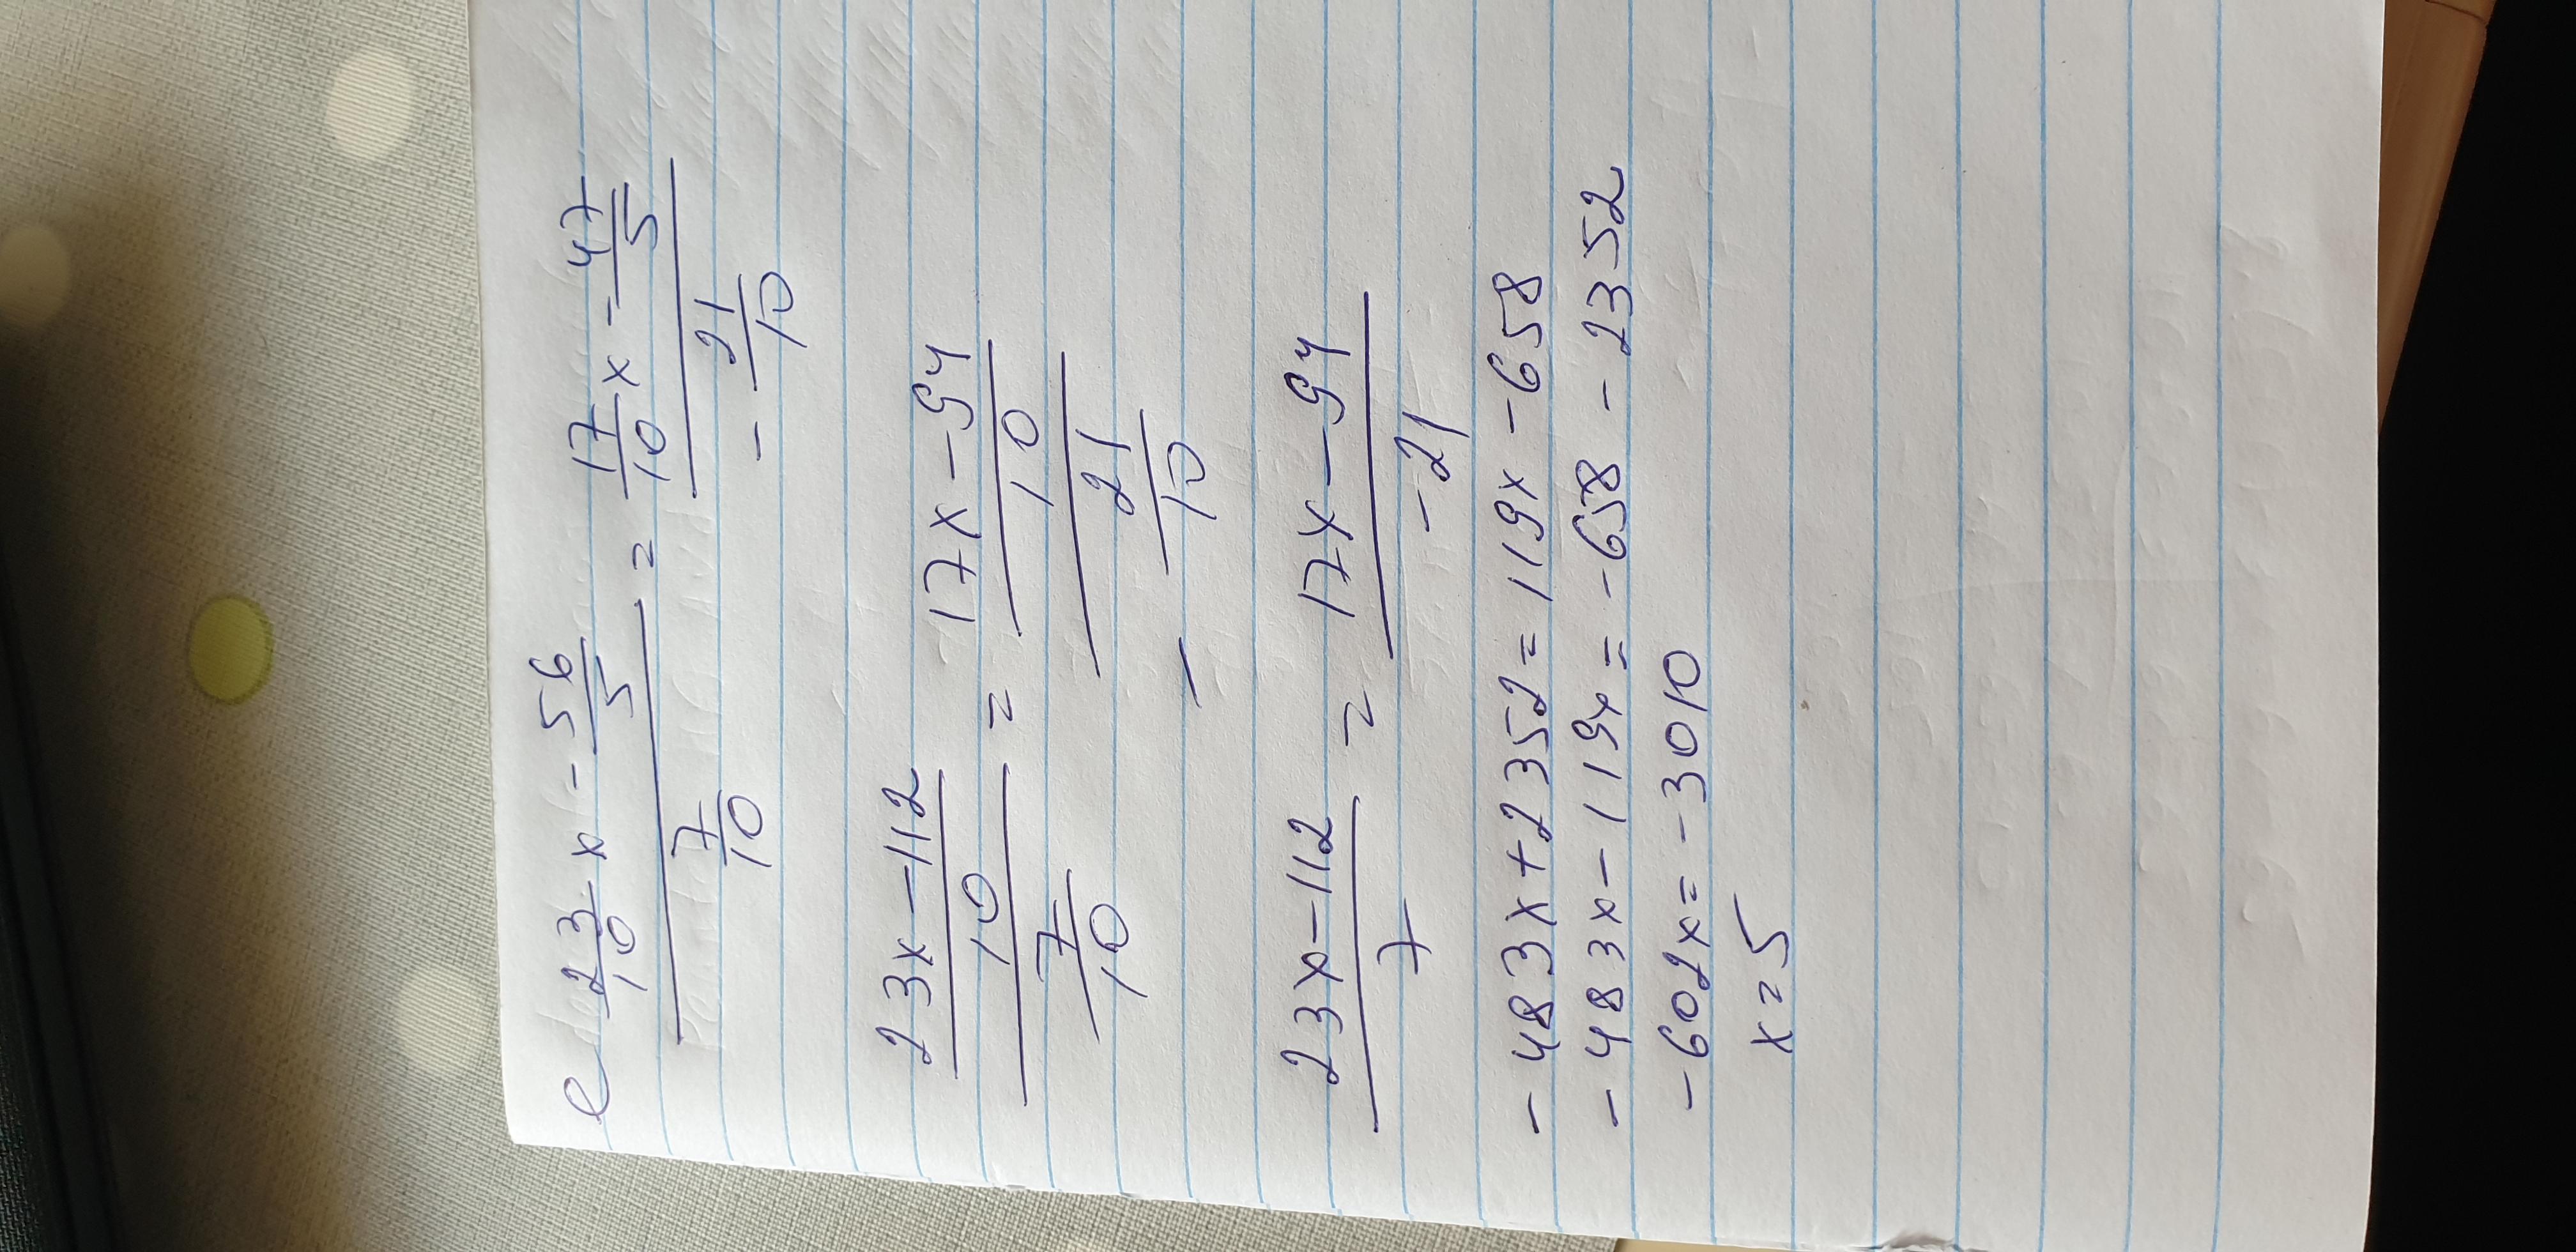 e
23/10 x - 56/5 / 7/10 = 17/10 x - 47/5 / - 21/10
23x - 112 / 10 / 7/10 = 17x - 94 / 10 / - 21/10
23x - 112 / 7 = 17x - 94 / -21
- 483x + 2352 = 119x - 658
- 483x - 119x = - 658 - 2352
- 602x = - 3010
x = 5